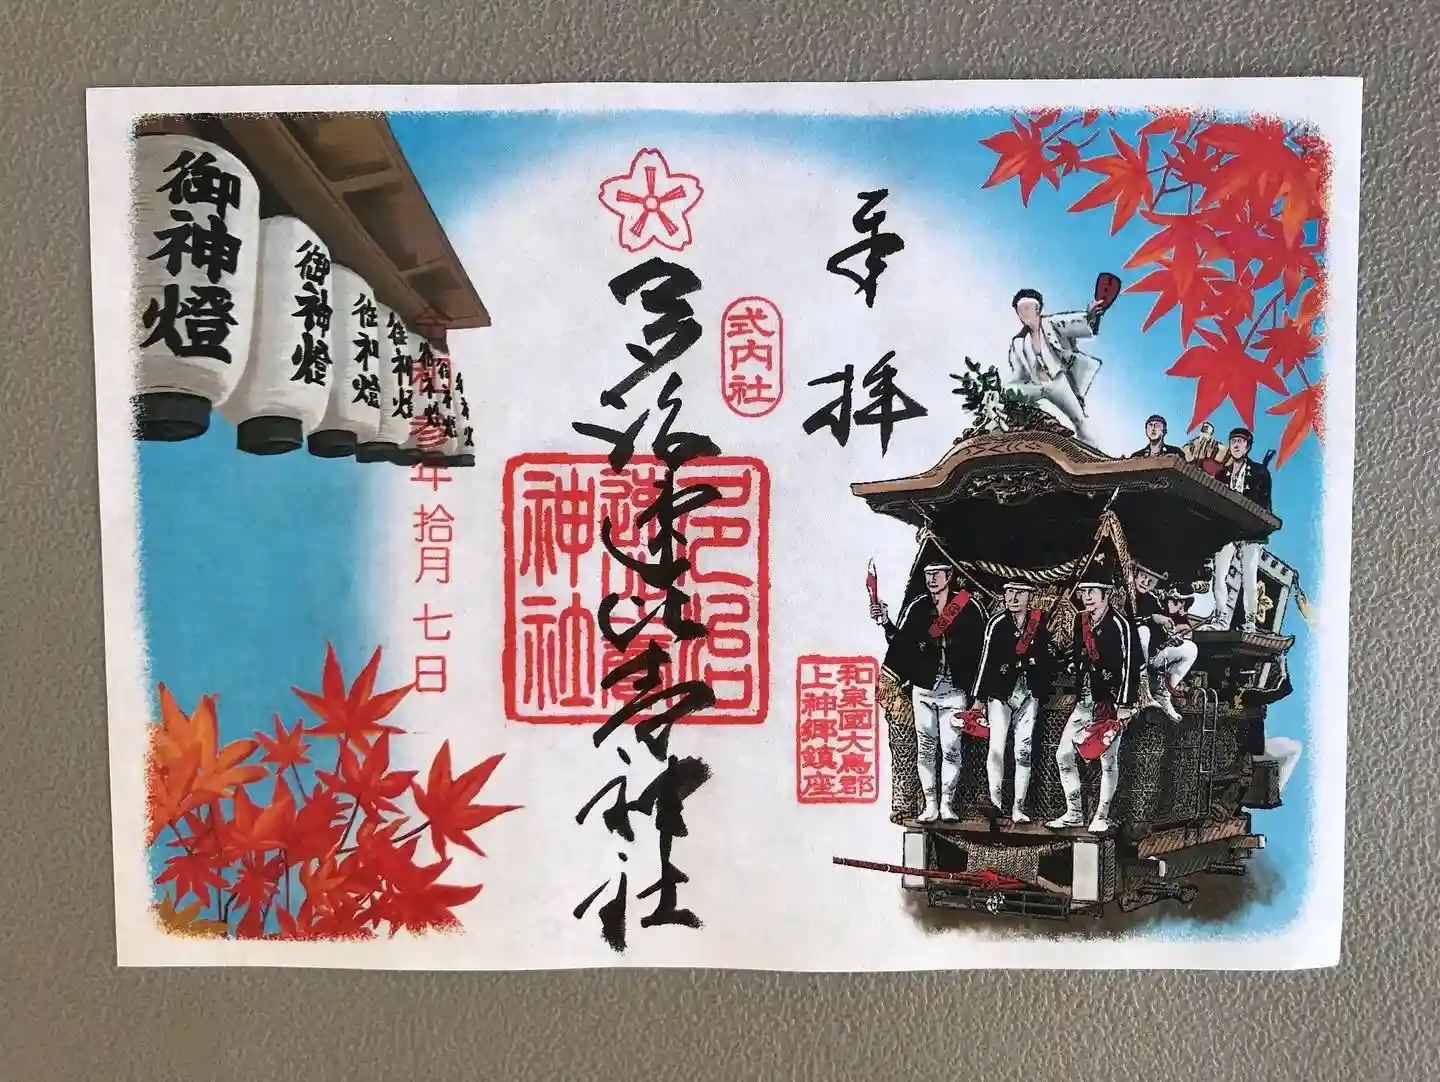 奉拝
式内社
和泉國大鳥郡
上神郷鎮座
多治速比売神社
多治
速比売
神社
令和参年拾月七日
御神燈
御神燈
御神燈
御神燈